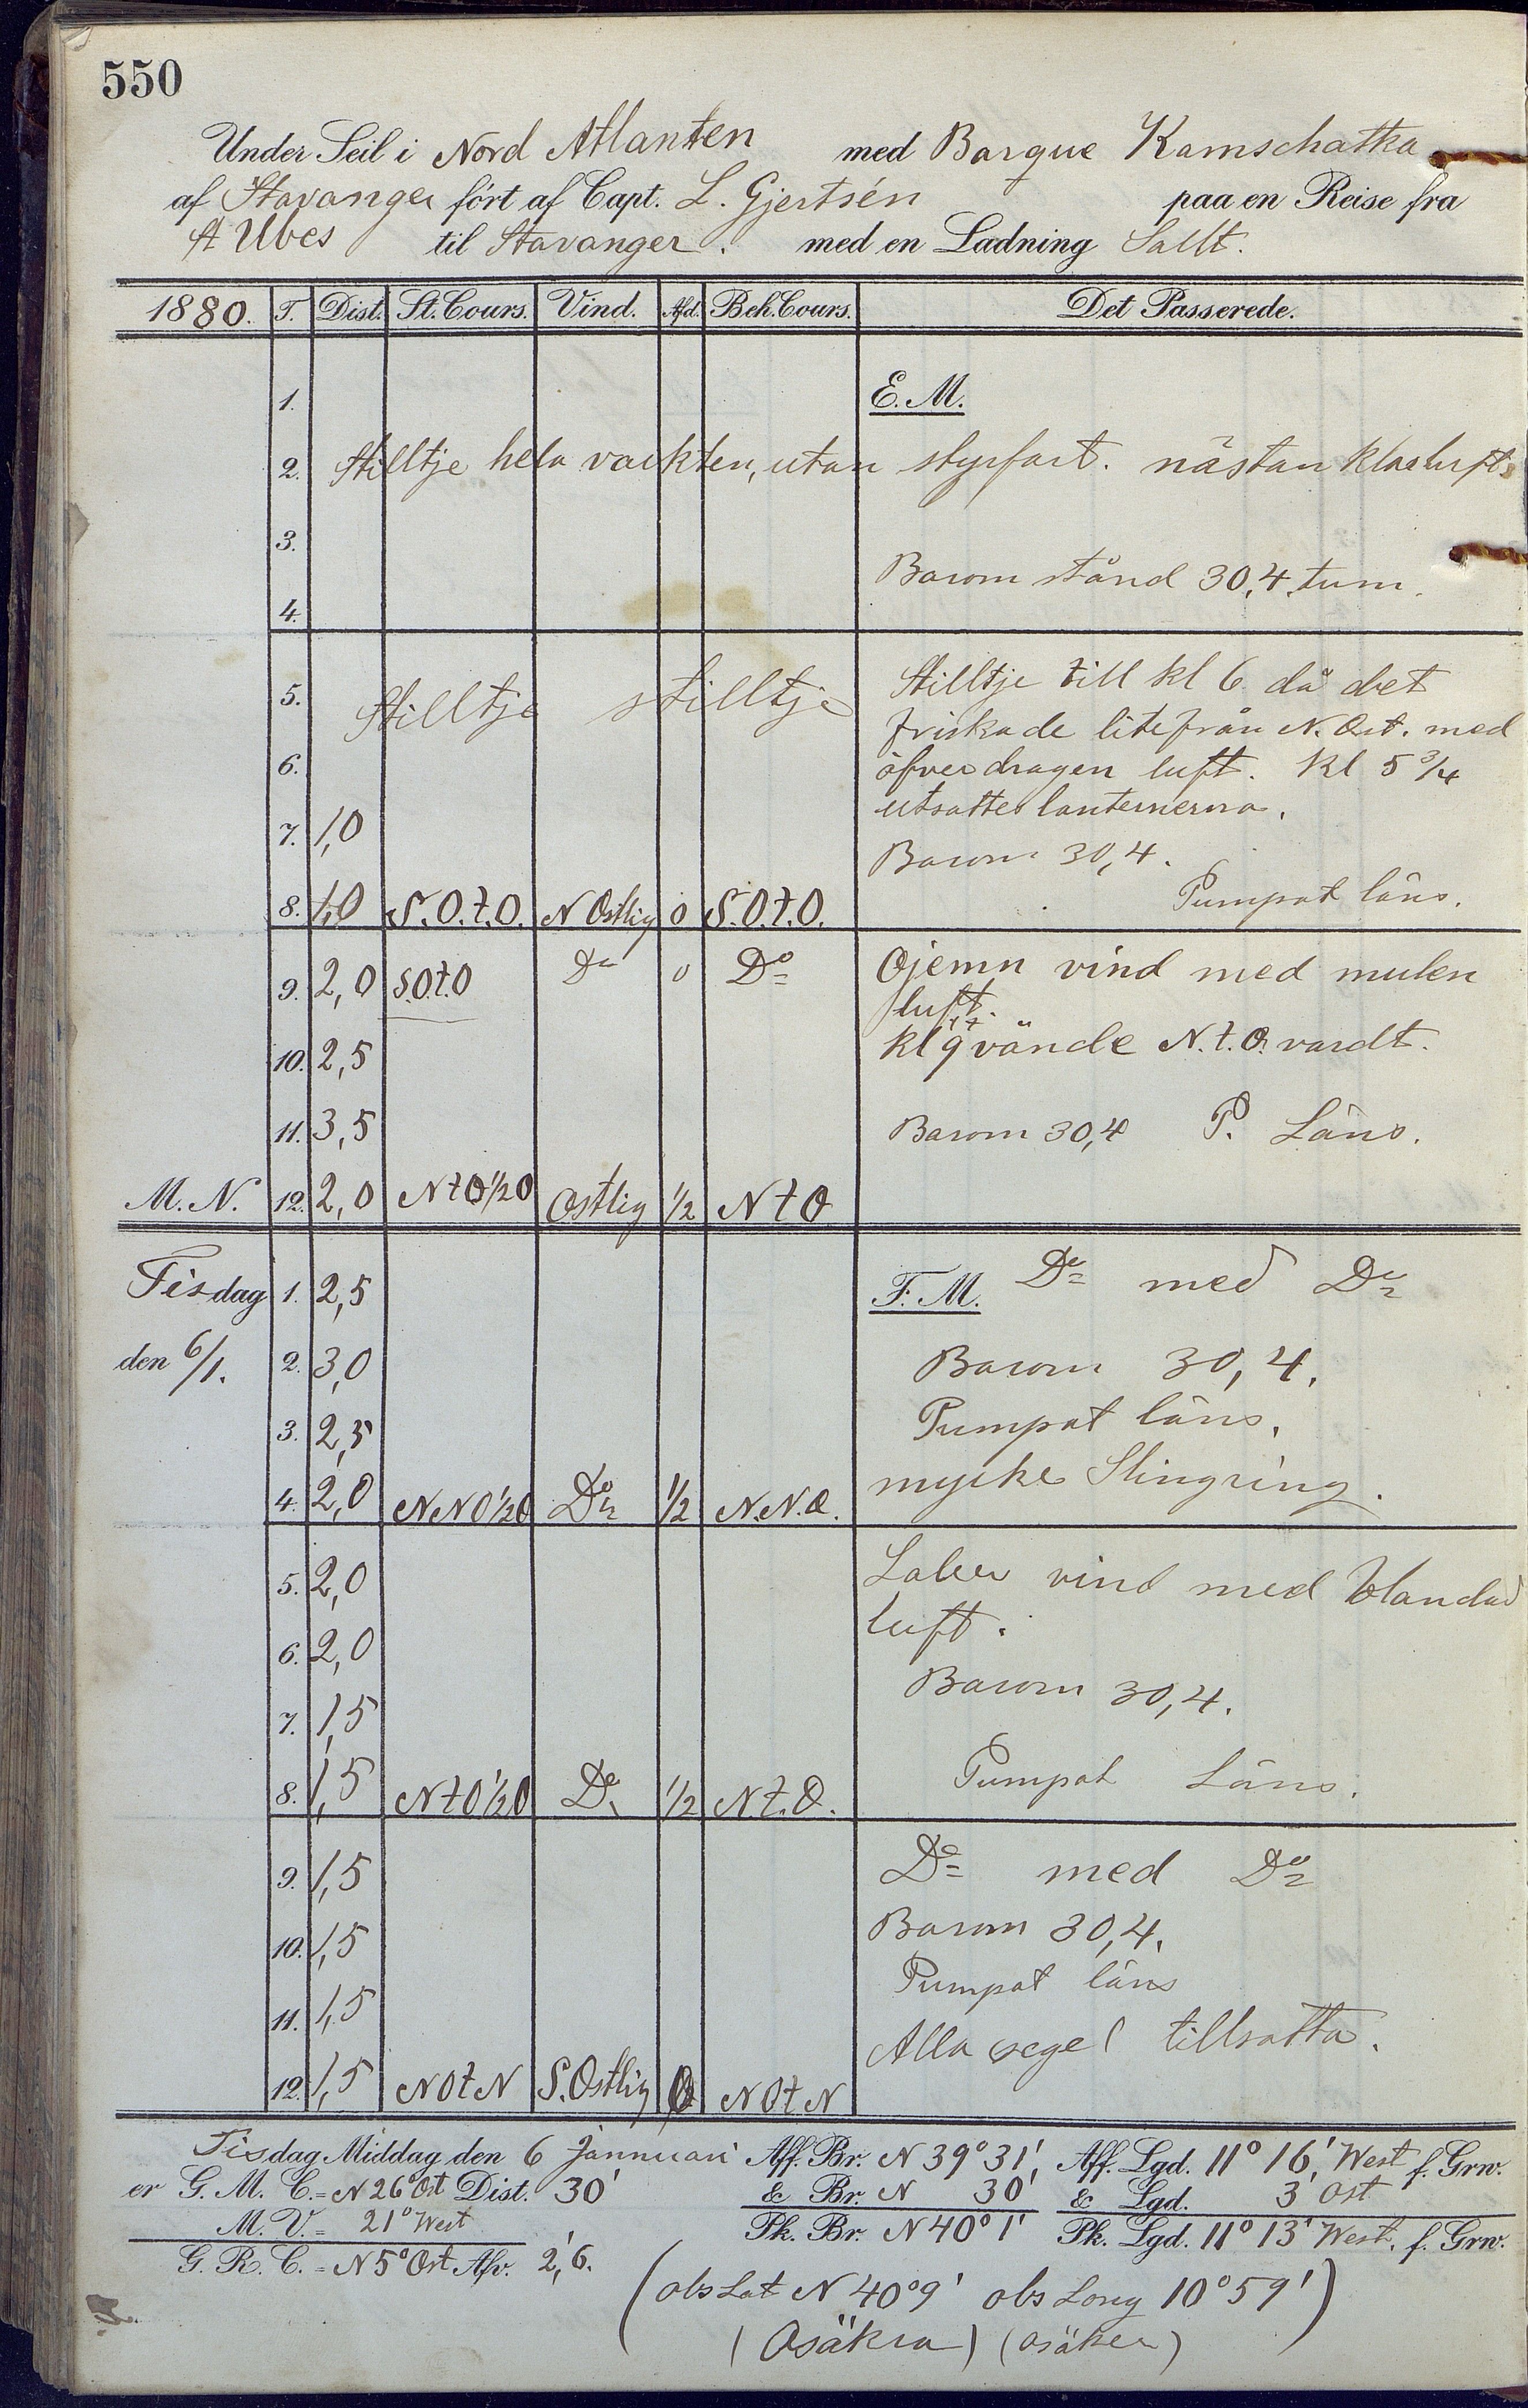 550
Under Seil i Nord Atlanten med Barque Kamschatka
af Stavanger ført af Capt. L. Gjertsén paa en Reise fra
St Ubes til Stavanger. med en Ladning Sallt.
1880. T. Dist. St. Cours. Vind. Afd. Beh. Cours. Det Passerede.
1. E. M.
2. Stilltje hela vackten, utan styrfart. nästan klarluft.
3.
Barom stånd 30,4. tum.
4.
5. Stilltje stilltje Stilltje till kl 6 då det
friskade lite från N. Ost. med
6. öfverdragen luft. Kl 5 3/4
utsattes lanternerna.
7. 1,0
Barom 30,4.
8. 1,0 S.O.t.O. N Ostlig 0 S.O.t.O. Pumpat läns.
9. 2,0 S.O.t.O Do 0 Do Ojemn vind med mulen
luft.
10. 2,5 kl 9 vände N.t.O. vardt.
11. 3,5 Barom 30,4 P. Läns.
M. N. 12. 2,0 NtO 1/2 O Ostlig 1/2 N t O
Tisdag 1. 2,5 F. M. Do med Do
den 6/1. 2. 3,0 Barom 30,4.
3. 2,5 Pumpat läns.
4. 2,0 NNO 1/2 O Do 1/2 N.N.O. mycke Slingring.
5. 2,0 Laber vind med blandad
luft.
6. 2,0
Barom 30,4.
7. 1,5
8. 1,5 NtO 1/2 O Do 1/2 N.t.O. Pumpat Läns.
9. 1,5 Do med Do
10. 1,5 Barom 30,4.
Pumpat läns
11. 1,5
Alla segel tillsatta.
12. 1,5 NOtN S. Ostlig 0 NOtN
Tisdag Middag den 6 Jannuari Aff. Br. N 39° 31', Aff. Lgd. 11° 16', West f. Grw.
er G. M. C. = N 26° Ost Dist. 30' & Br. N 30' & Lgd. 3 Ost
M. V. = 21° West Pk. Br. N 40° 1' Pk. Lgd. 11° 13' West. f. Grw.
G. R. C. = N 5° Ost Afv. 2,'6.
(obs Lat N 40° 9' obs Long 10° 59')
(Osäkra) (osäker)